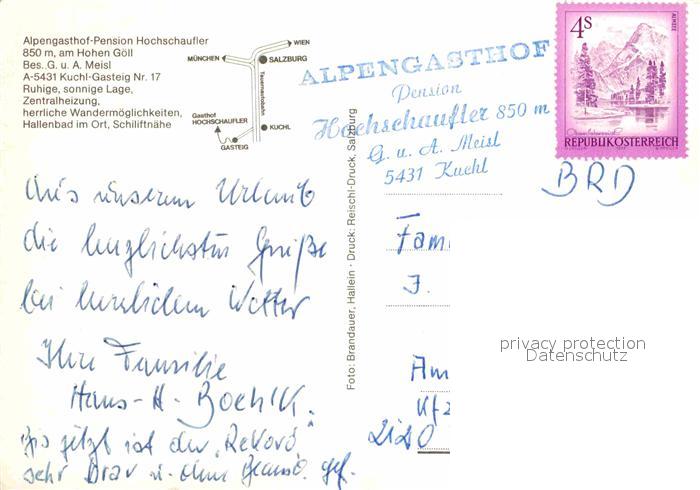 Alpengasthof-Pension Hochschaufler
850 m, am Hohen Göll
Bes. G. u. A. Meisl
A-5431 Kuchl-Gasteig Nr. 17
Ruhige, sonnige Lage,
Zentralheizung,
herrliche Wandermöglichkeiten,
Hallenbad im Ort, Schiliftnähe
WIEN
MÜNCHEN
SALZBURG
Tauernautobahn
Gasthof
HOCHSCHAUFLER
KUCHL
GASTEIG
ALPENGASTHOF
Pension
Hochschaufler 850 m
G. u. A. Meisl
5431 Kuchl
4S
ALMSEE
REPUBLIK ÖSTERREICH
BRD
Aus unserem Urlaub
die herzlichsten Grüße
bei herrlichem Wetter
Ihre Familie
Hans-H. Boehlk.
Bis jetzt ist der "Rekord"
sehr brav u. ohne gef.
Foto: Brandauer, Hallein - Druck: Reischl-Druck, Salzburg
Fam
J.
Am
Kfz
2120
privacy protection
Datenschutz